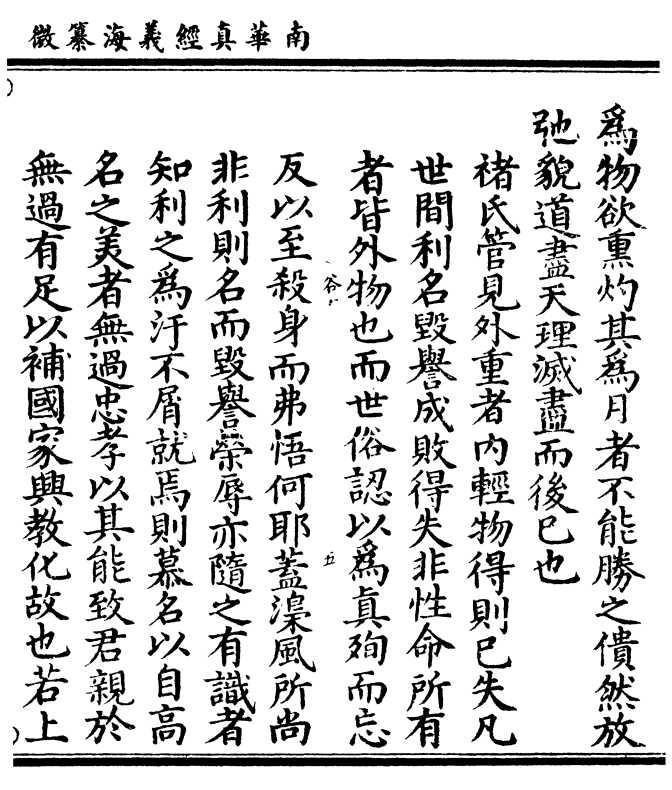 南華真經義海纂微
為物欲熏灼其為月者不能勝之僓然放
弛貌道盡天理滅盡而後已也
褚氏管見外重者內輕物得則已失凡
世間利名毀譽成敗得失非性命所有
者皆外物也而世俗認以為真殉而忘
谷八
五
反以至殺身而弗悟何耶蓋澡風所尚
非利則名而毀譽榮辱亦隨之有識者
知利之為汙不屑就焉則慕名以自高
名之美者無過忠孝以其能致君親於
無過有足以補國家興教化故也若上